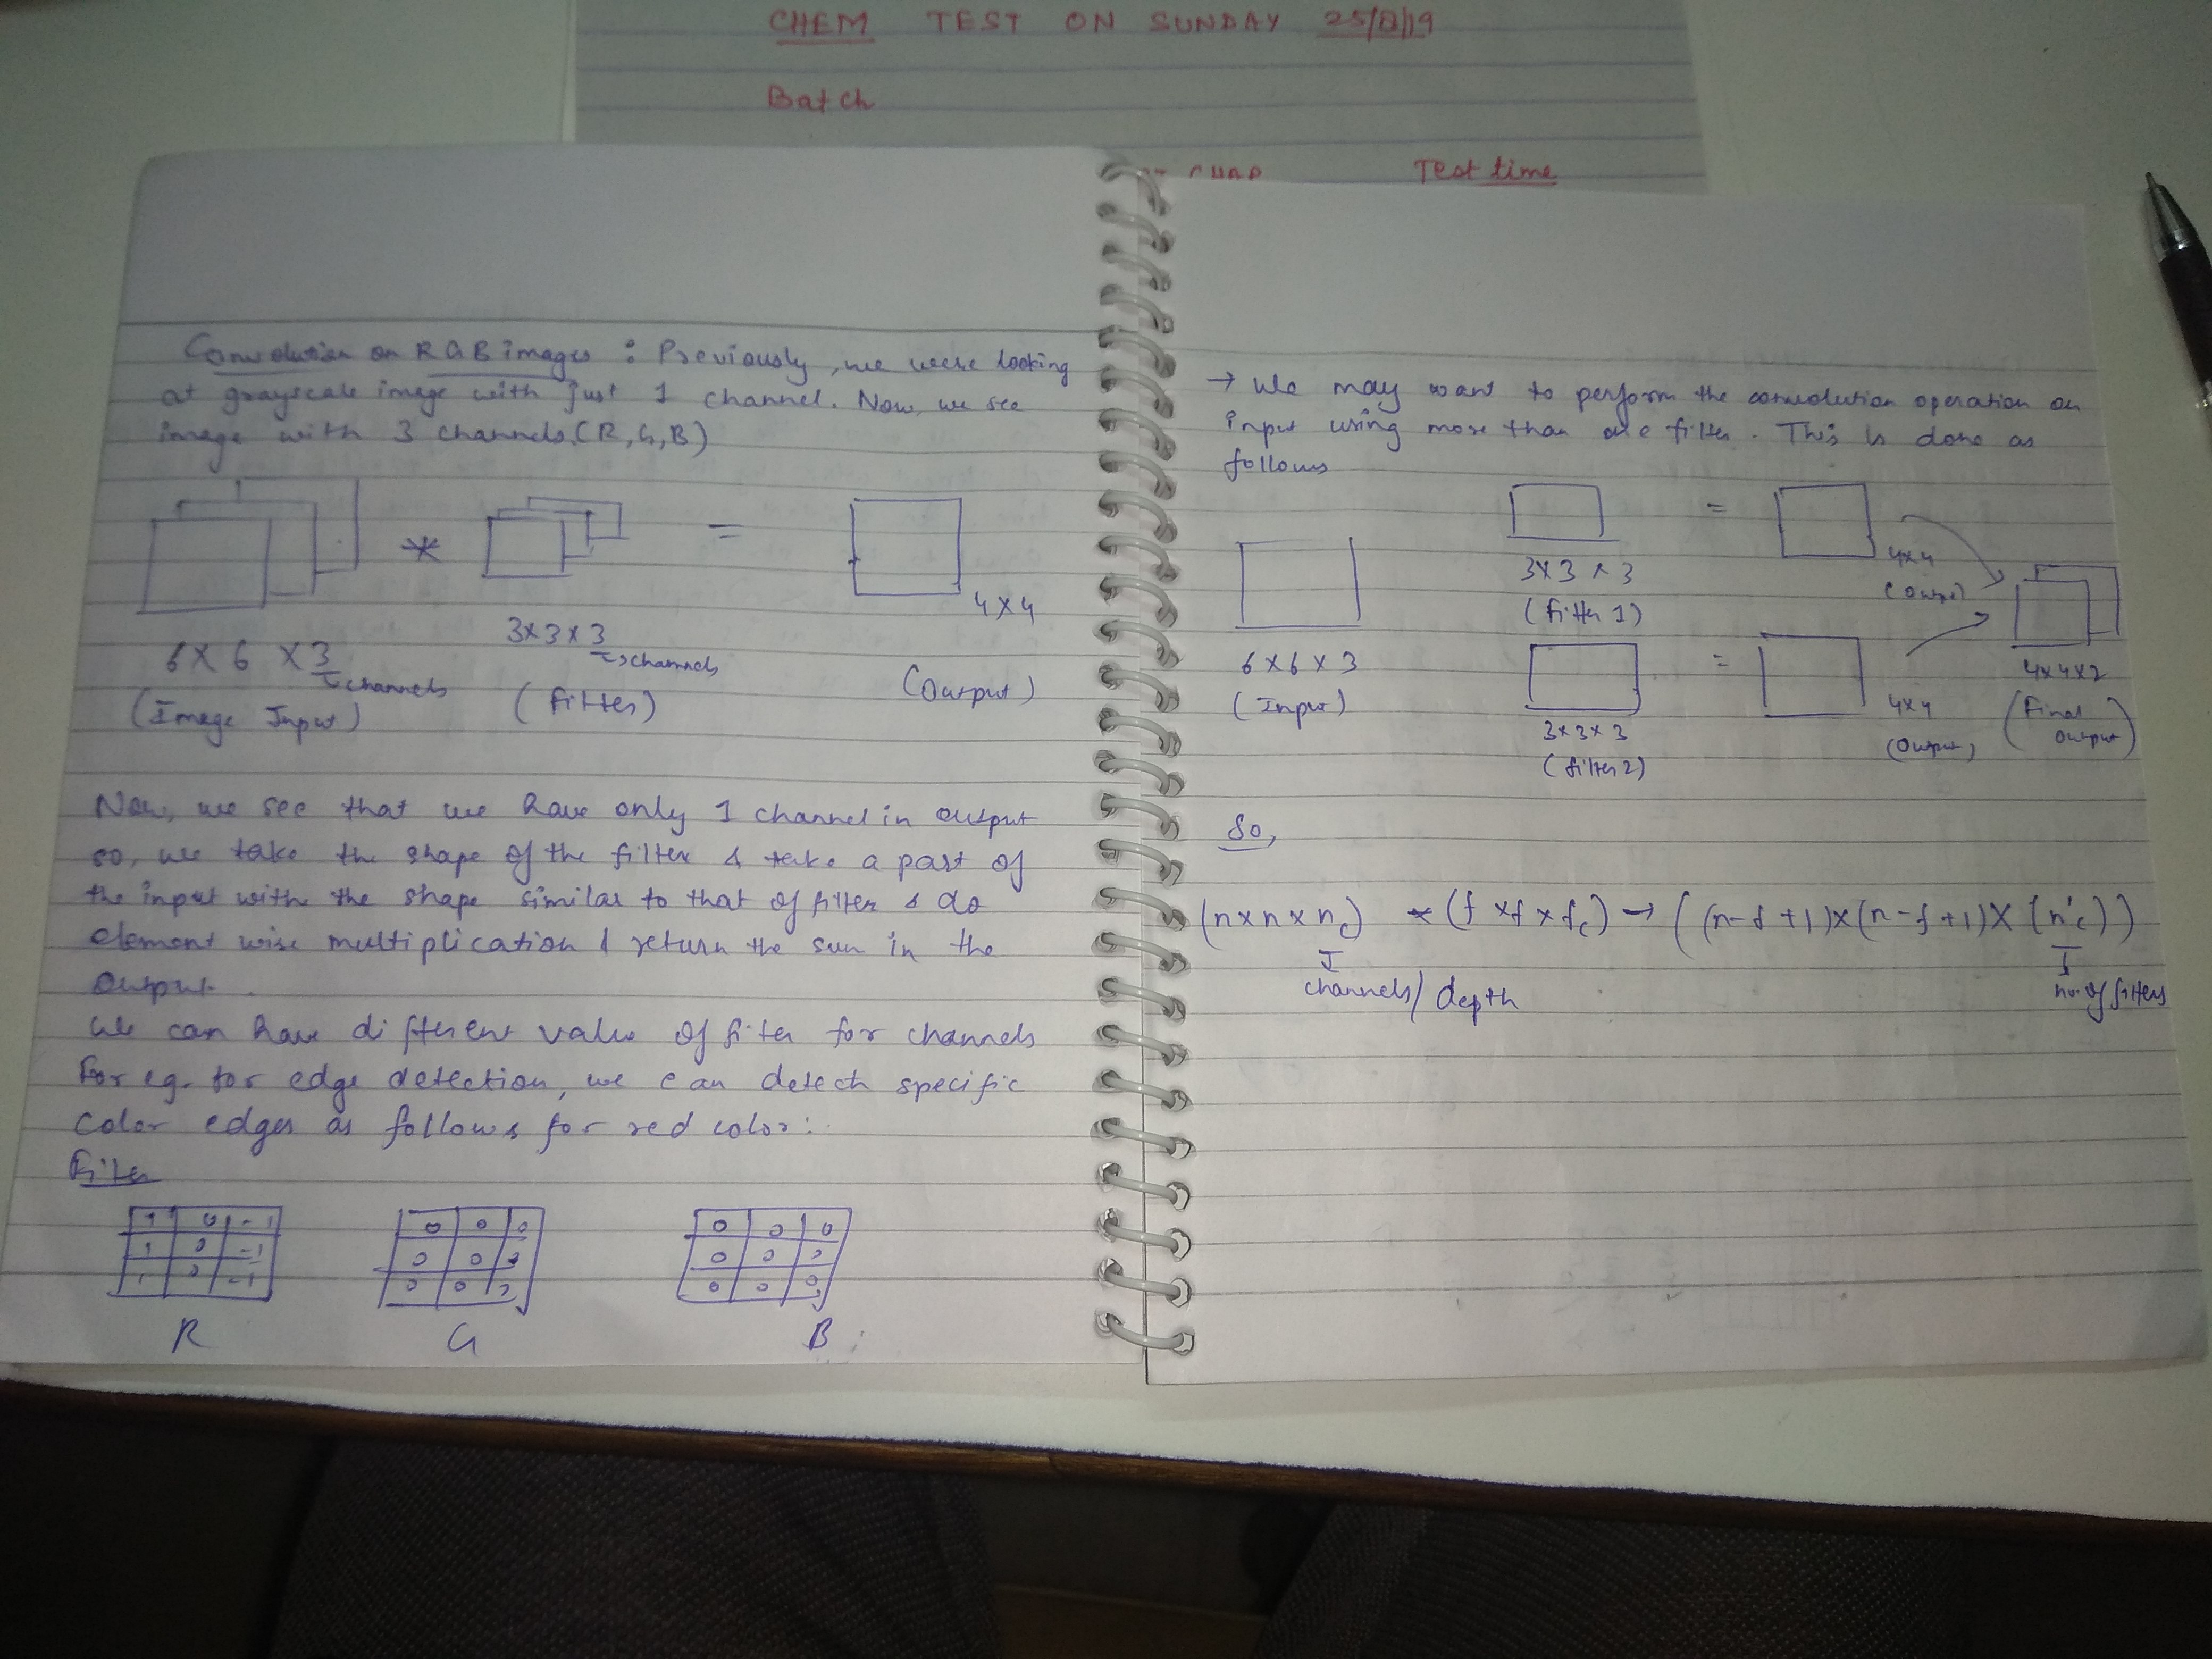 CHEM TEST ON SUNDAY 25/8/19
Batch
CHAP Test time
Convolution on RGB images : Previously, we were looking
at grayscale image with just 1 channel. Now, we see
image with 3 channels (R, G, B)
* =
4 x 4
6 x 6 x 3
channels
(Image Input)
3 x 3 x 3
channels
(filter)
(Output)
Now, we see that we have only 1 channel in output
so, we take the shape of the filter & take a part of
the input with the shape similar to that of filter & do
element wise multiplication & return the sum in the
output.
We can have different value of filter for channels
For eg. for edge detection, we can detect specific
color edges as follows for red color:
Filter
1 0 -1
1 0 -1
1 0 -1
R
0 0 0
0 0 0
0 0 0
G
0 0 0
0 0 0
0 0 0
B
→ We may want to perform the convolution operation on
input using more than one filter. This is done as
follows
6 x 6 x 3
(Input)
3 x 3 x 3
(filter 1)
=
4x4
(Output)
3 x 3 x 3
(filter 2)
=
4x4
(Output)
4x4x2
(Final
output)
So,
(n x n x nc) * (f x f x fc) → ((n-f+1) x (n-f+1) x (n'c))
channels / depth
no. of filters